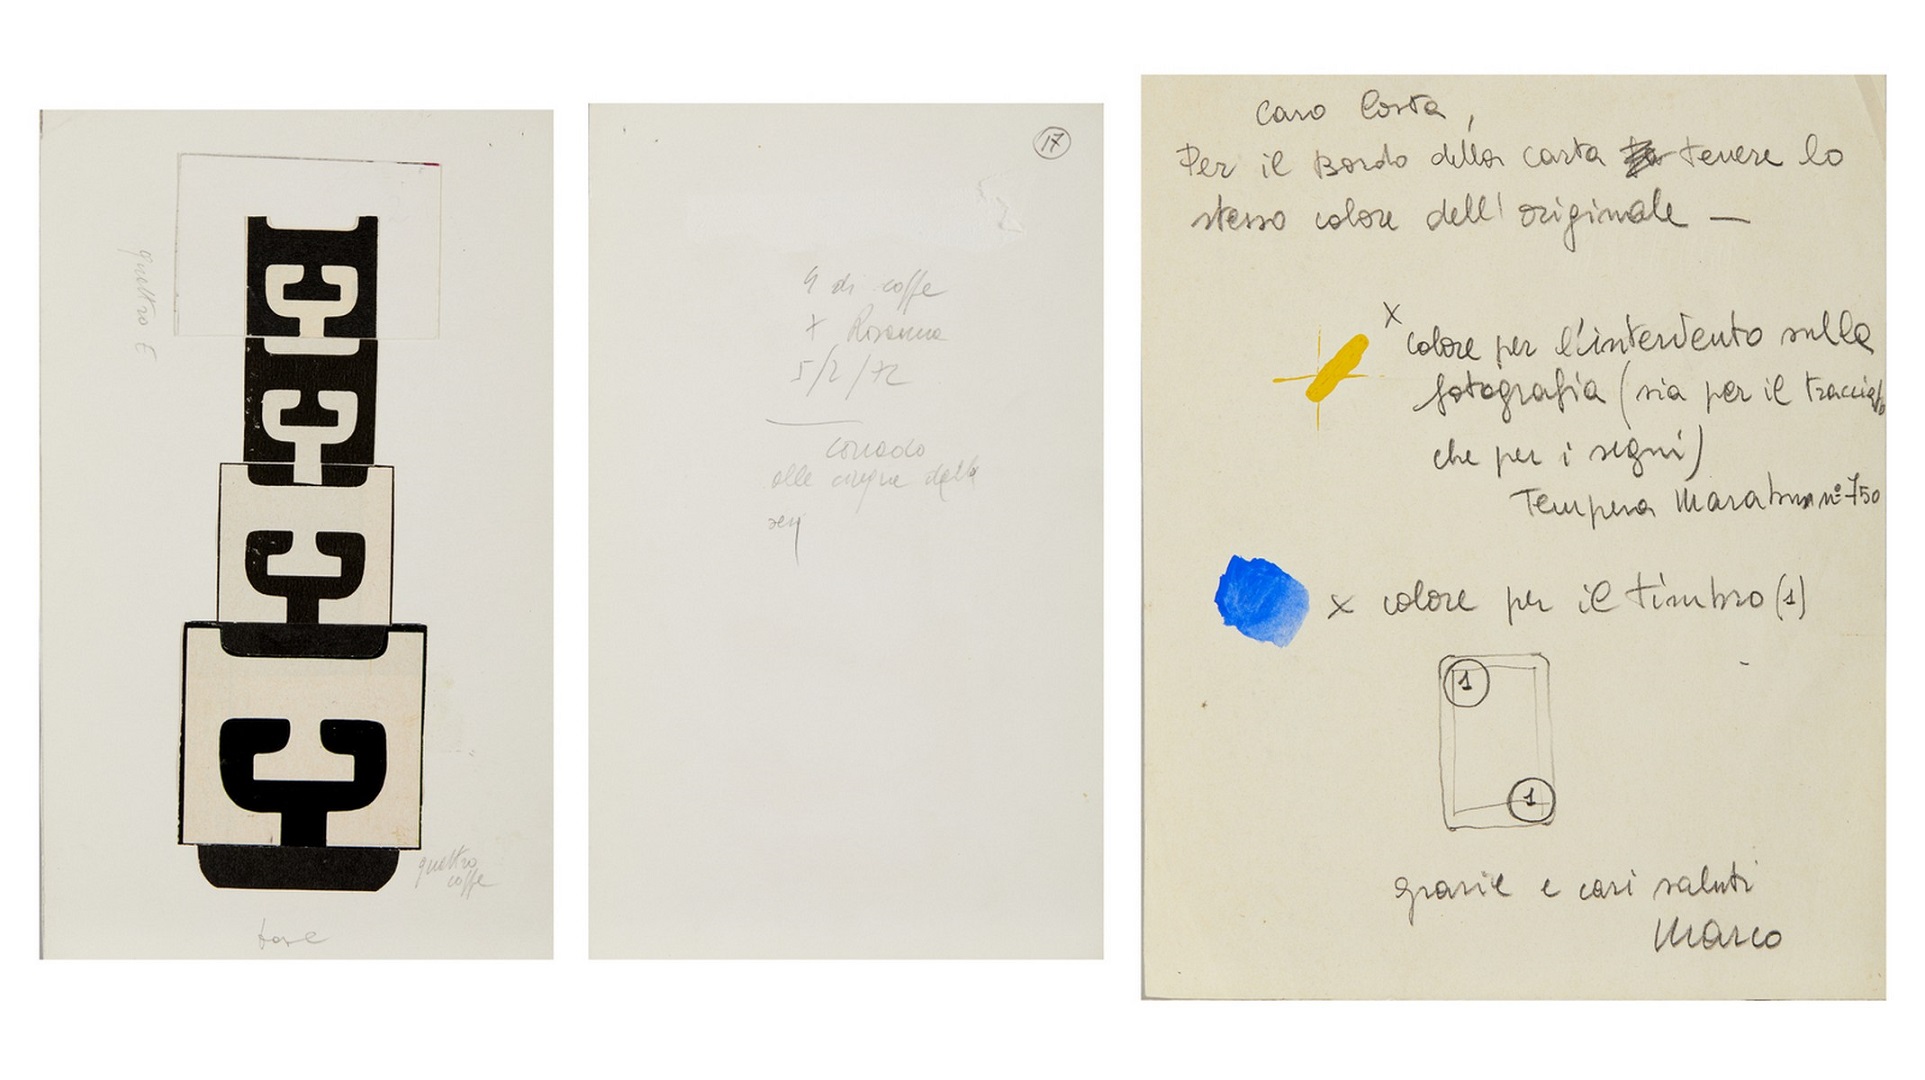 quattro E
quattro
coffe
17
4 di coffe
x Rosanna
5/2/72
corrado
alle cinque della
Caro Costa,
Per il Bordo della carta tenere lo
stesso colore dell'originale —
x
colore per l'intervento sulla
fotografia (sia per il tracciato
che per i segni)
Tempera Marabu n° 750
x colore per il timbro (1)
1
1
grazie e cari saluti
Marco